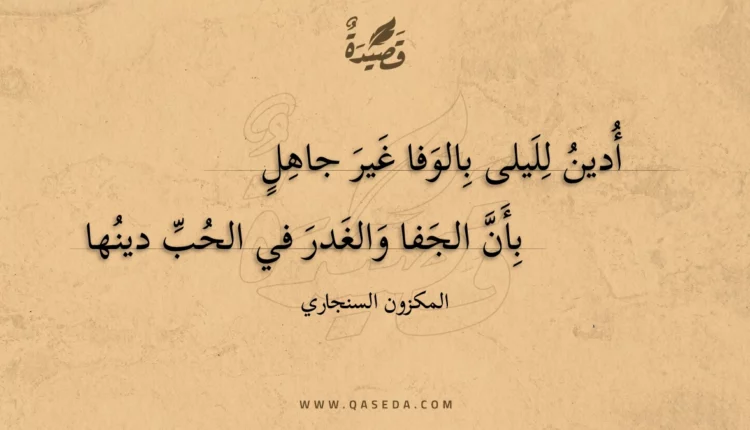 قَصِيْدَةٌ
أُدينُ لِلَيلى بِالوَفا غَيرَ جاهِلٍ
بِأَنَّ الجَفا وَالغَدرَ في الحُبِّ دينُها
المكزون السنجاري
WWW.QASEDA.COM